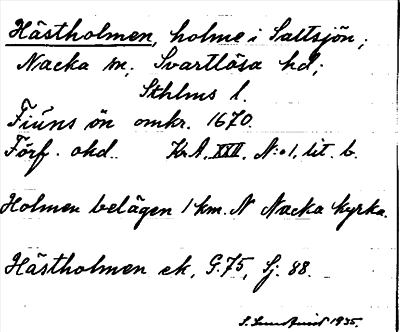 Hästholmen, holme i Saltsjön;
Nacka sn; Svartlösa hd;
Sthlms l.
Fiúns ön omkr. 1670.
Förf. okd. Kr.A. XXII, N:o 1, lit. b.
Holmen belägen 1 km. N Nacka kyrka.
Hästholmen ek, G. 75, Sj. 88.
1935.